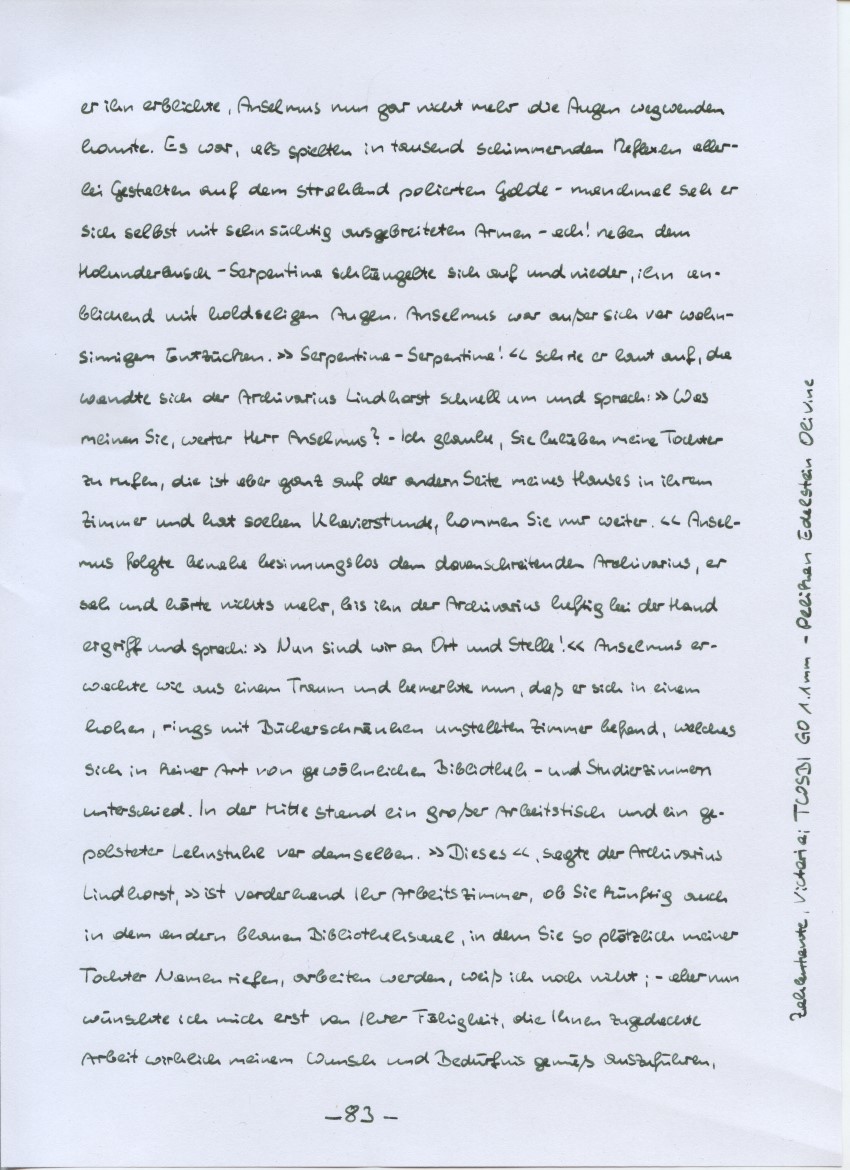 er ihn erblickte, Anselmus nun gar nicht mehr die Augen wegwenden
konnte. Es war, als spielten in tausend schimmernden Reflexen aller-
lei Gestalten auf dem strahlend polierten Golde – manchmal sah er
sich selbst mit sehnsüchtig ausgebreiteten Armen – ach! neben dem
Holunderbusch – Serpentina schlängelte sich auf und nieder, ihn an-
blickend mit holdseligen Augen. Anselmus war außer sich vor wahn-
sinnigem Entzücken. »Serpentina – Serpentina!« schrie er laut auf, da
wandte sich der Archivarius Lindhorst schnell um und sprach: »Was
meinen Sie, werter Herr Anselmus? – Ich glaube, Sie belieben meine Tochter
zu rufen, die ist aber ganz auf der andern Seite meines Hauses in ihrem
Zimmer und hat soeben Klavierstunde, kommen Sie nur weiter.« Ansel-
mus folgte beinahe besinnungslos dem davonschreitenden Archivarius, er
sah und hörte nichts mehr, bis ihn der Archivarius heftig bei der Hand
ergriff und sprach: »Nun sind wir an Ort und Stelle!« Anselmus er-
wachte wie aus einem Traum und bemerkte nun, daß er sich in einem
hohen, rings mit Bücherschränken umstellten Zimmer befand, welches
sich in keiner Art von gewöhnlichen Bibliothek- und Studierzimmern
unterschied. In der Mitte stand ein großer Arbeitstisch und ein ge-
polsteter Lehnstuhl vor demselben. »Dieses«, sagte der Archivarius
Lindhorst, »ist vorderhand Ihr Arbeitszimmer, ob Sie künftig auch
in dem andern blauen Bibliotheksaal, in dem Sie so plötzlich meiner
Tochter Namen riefen, arbeiten werden, weiß ich noch nicht; – aber nun
wünschte ich mich erst von Ihrer Fähigkeit, die Ihnen zugedachte
Arbeit wirklich meinem Wunsch und Bedürfnis gemäß auszuführen,
– 83 –
Zahlentante, Victoria; TWSBI GO 1.1mm – Pelikan Edelstein Olivine